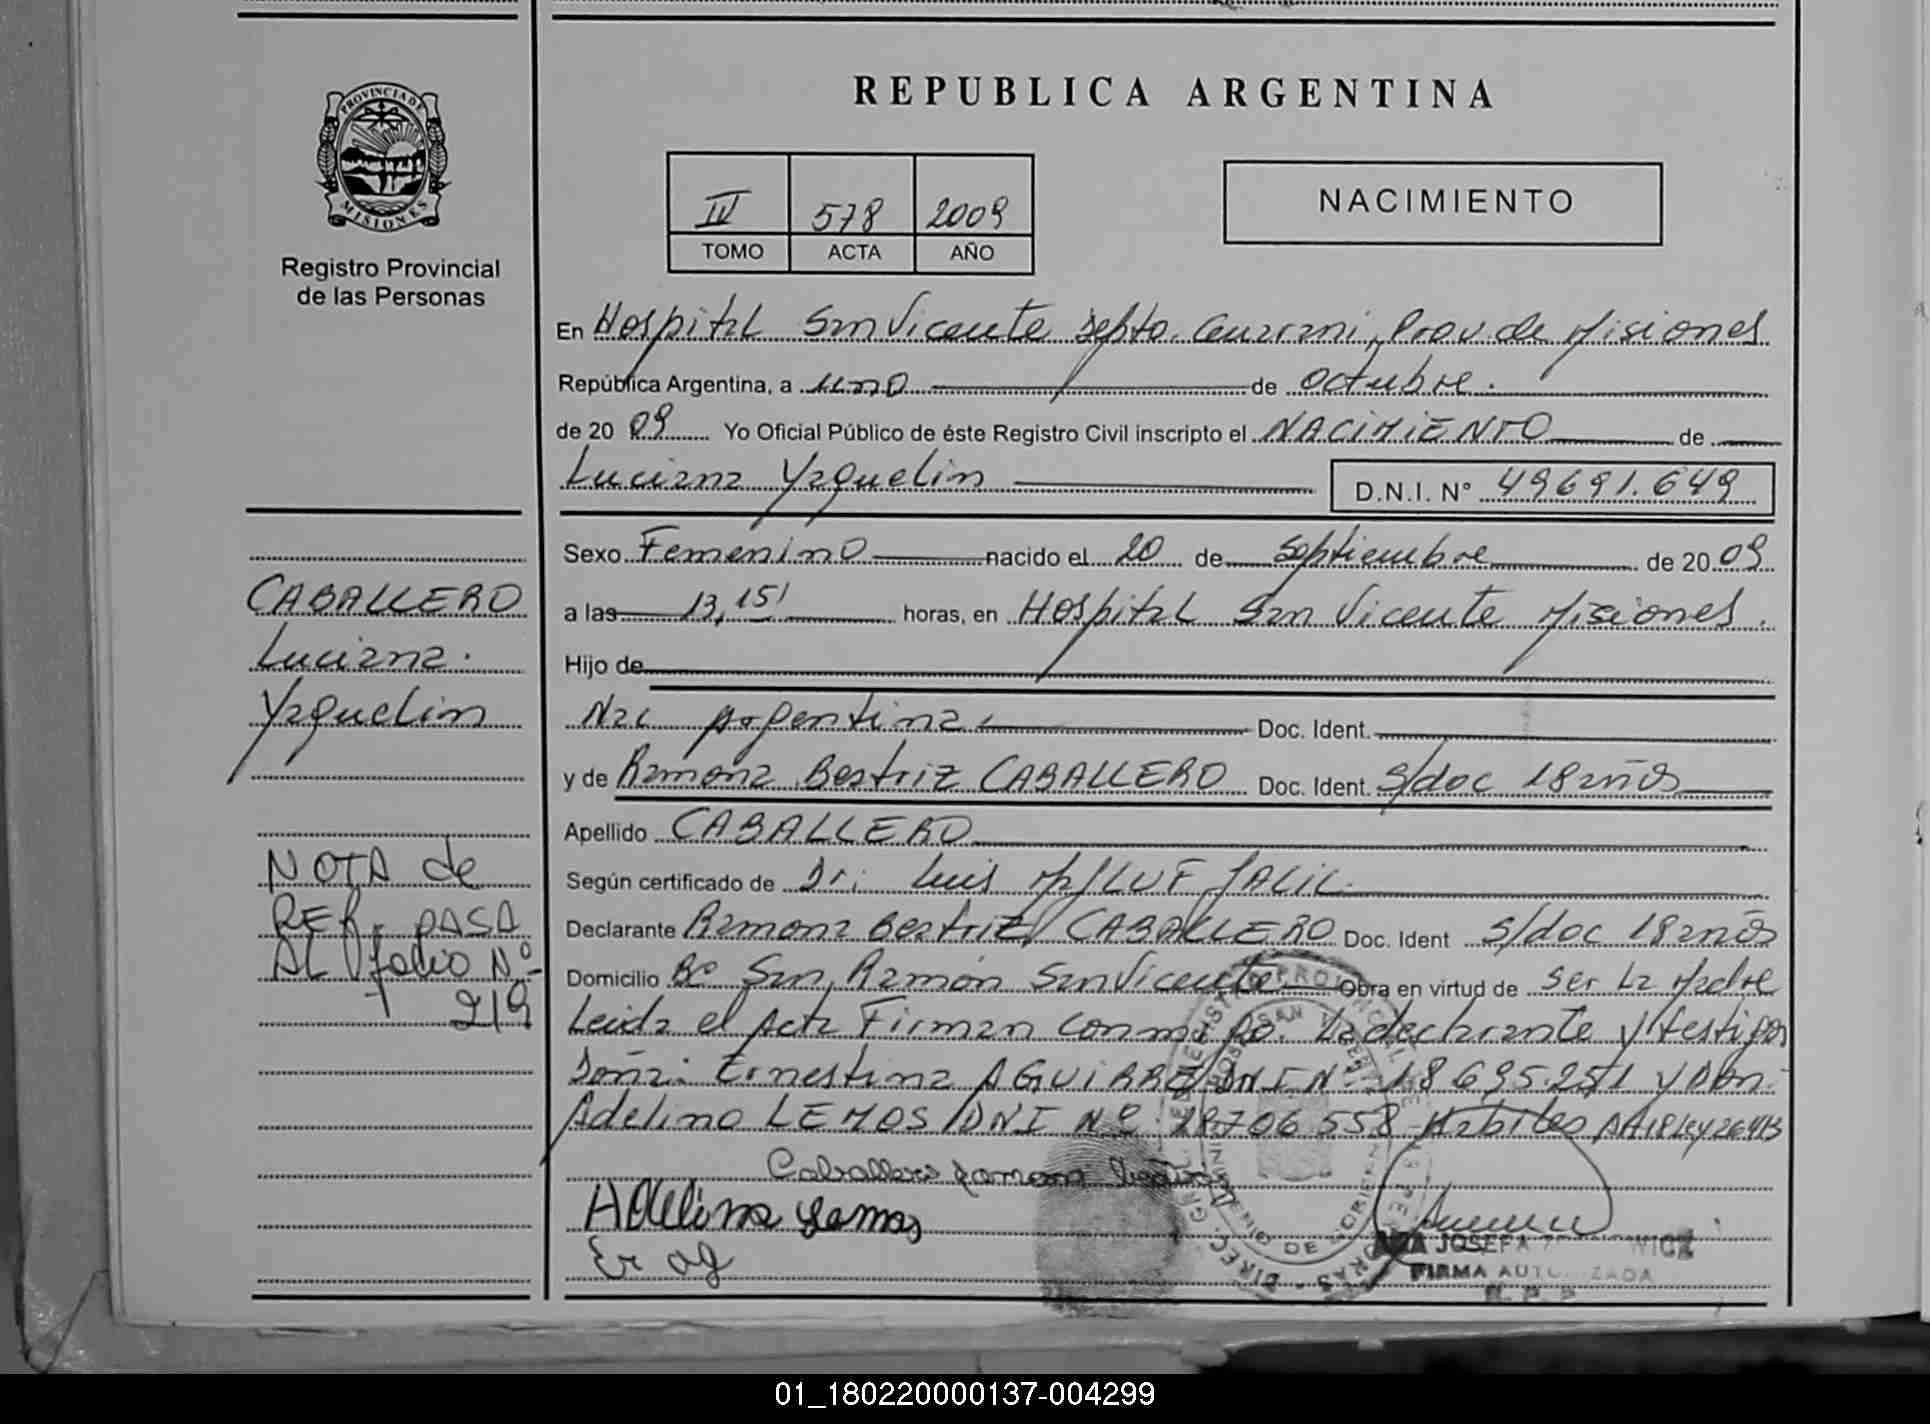 REPUBLICA ARGENTINA
PROVINCIA DE
MISIONES
Registro Provincial
de las Personas
IV 578 2009
TOMO ACTA AÑO
NACIMIENTO
En Hospital San Vicente Depto. Guarani, Prov. de Misiones
República Argentina, a uno de octubre.
de 20 09 Yo Oficial Público de éste Registro Civil inscripto el NACIMIENTO de
Luciana Yaquelin
D.N.I. N° 49691.649
Sexo Femenino nacido el 20 de Septiembre de 20 09
a las 13,15' horas, en Hospital San Vicente Misiones.
Hijo de
Nac Argentina Doc. Ident.
y de Ramona Beatriz CABALLERO Doc. Ident. S/doc 18 años
Apellido CABALLERO
Según certificado de Dr: Luis JALIL
Declarante Ramona Beatriz CABALLERO Doc. Ident S/doc 18 años
Domicilio Bº San Ramón San Vicente Obra en virtud de ser la Madre
Leida el Acta Firman conmigo. La declarante y testigos
Doña: Ernestina AGUIRRE DNI Nº 18 695.251 y Don
Adelino LEMOS DNI Nº 28706 558 Habiles
CABALLERO
Luciana
Yaquelin
NOTA de
REF. PASA
AL folio Nº
219
Caballero ramona
Adelino Lemos
Er ag
JOSEFA
FIRMA AUTORIZADA
01_180220000137-004299